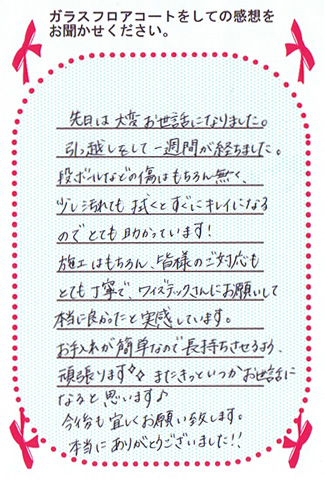 ガラスフロアコートをしての感想を
お聞かせください。
先日は大変お世話になりました。
引っ越しをして一週間が経ちました。
段ボールなどの傷はもちろん無く、
少し汚れても拭くとすぐにキレイになる
のでとても助かっています!
施工はもちろん、皆様のご対応も
とても丁寧で、ワイズテックさんにお願いして
本当に良かったと実感しています。
お手入れが簡単なので長持ちさせるよう、
頑張ります✧✧ またきっといつかお世話に
なると思います♪
今後も宜しくお願い致します。
本当にありがとうございました!!